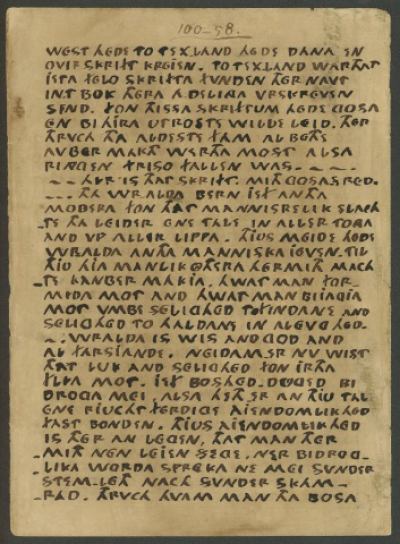 100-58.
WEST HEDE TO TEXLAND HEDE DANA EN
OVIRSKRIFT KREIEN. TO TEXLAND WARTHAT
ISTA FELO SKRIFTA FUNDEN THER NAVT
INT BOK THERA ADELINGA VRSKREVEN
SEND. FON THISSA SKRIFTUM HEDE GOSA
EN BI HIRA UTROSTE WILLE LEID. THER
THRVCH THA ALDESTE FAM ALBETHE
AVBER MAKTH WERTHA MOST ALSA
RINGEN FRISO FALLEN WAS. ~ ~ ~ ~
~ ~ HIR IS THAT SKRIFT. MITH GOSAS RED.
~ ~ ~ THA WRALDA BERN IEF ANTHA
MODERA FON THAT MANNISKLIK SLACH
TE THA LEIDER ENE TALE IN ALLER TONGA
AND VP ALLER LIPPA. THIUS MEIDE HEDE
WRALDA ANTHA MANNISKA IEVEN. TIL
THIU HIA MANLIK OTHERA THERMITH MACH
TE KANBER MAKIA. HWAT MAN FOR-
MIDA MOT AND HWAT MAN BIIAGIA
MOT VMBE SELIGHED TO FINDANE AND
SELIGHED TO HALDANE IN AL EVG HED.
~. WRALDA IS WIS AND GOD AND
AL FARSIANDE. NEIDAM ER NV WIST
THAT LUK AND SELIGHED FON IRTHA
FLIA MOT. IEF BOSHED DUGED BI
DROGA MEI. ALSA HETH ER AN THIU TAL
ENE RIUCHT FERDIGE AIENDOMLIKHED
FAST BONDEN. THIUS AIENDOMLIKHED
IS THER AN LEGEN, THAT MAN THER
MITH NEN LEIEN SEZE. NER BIDROG-
LIKA WORDA SPREKA NE MEI SUNDER
STEM-LETH NACH SUNDER SKAM-
RAD. THRVCH HVAM MAN THA BOSA